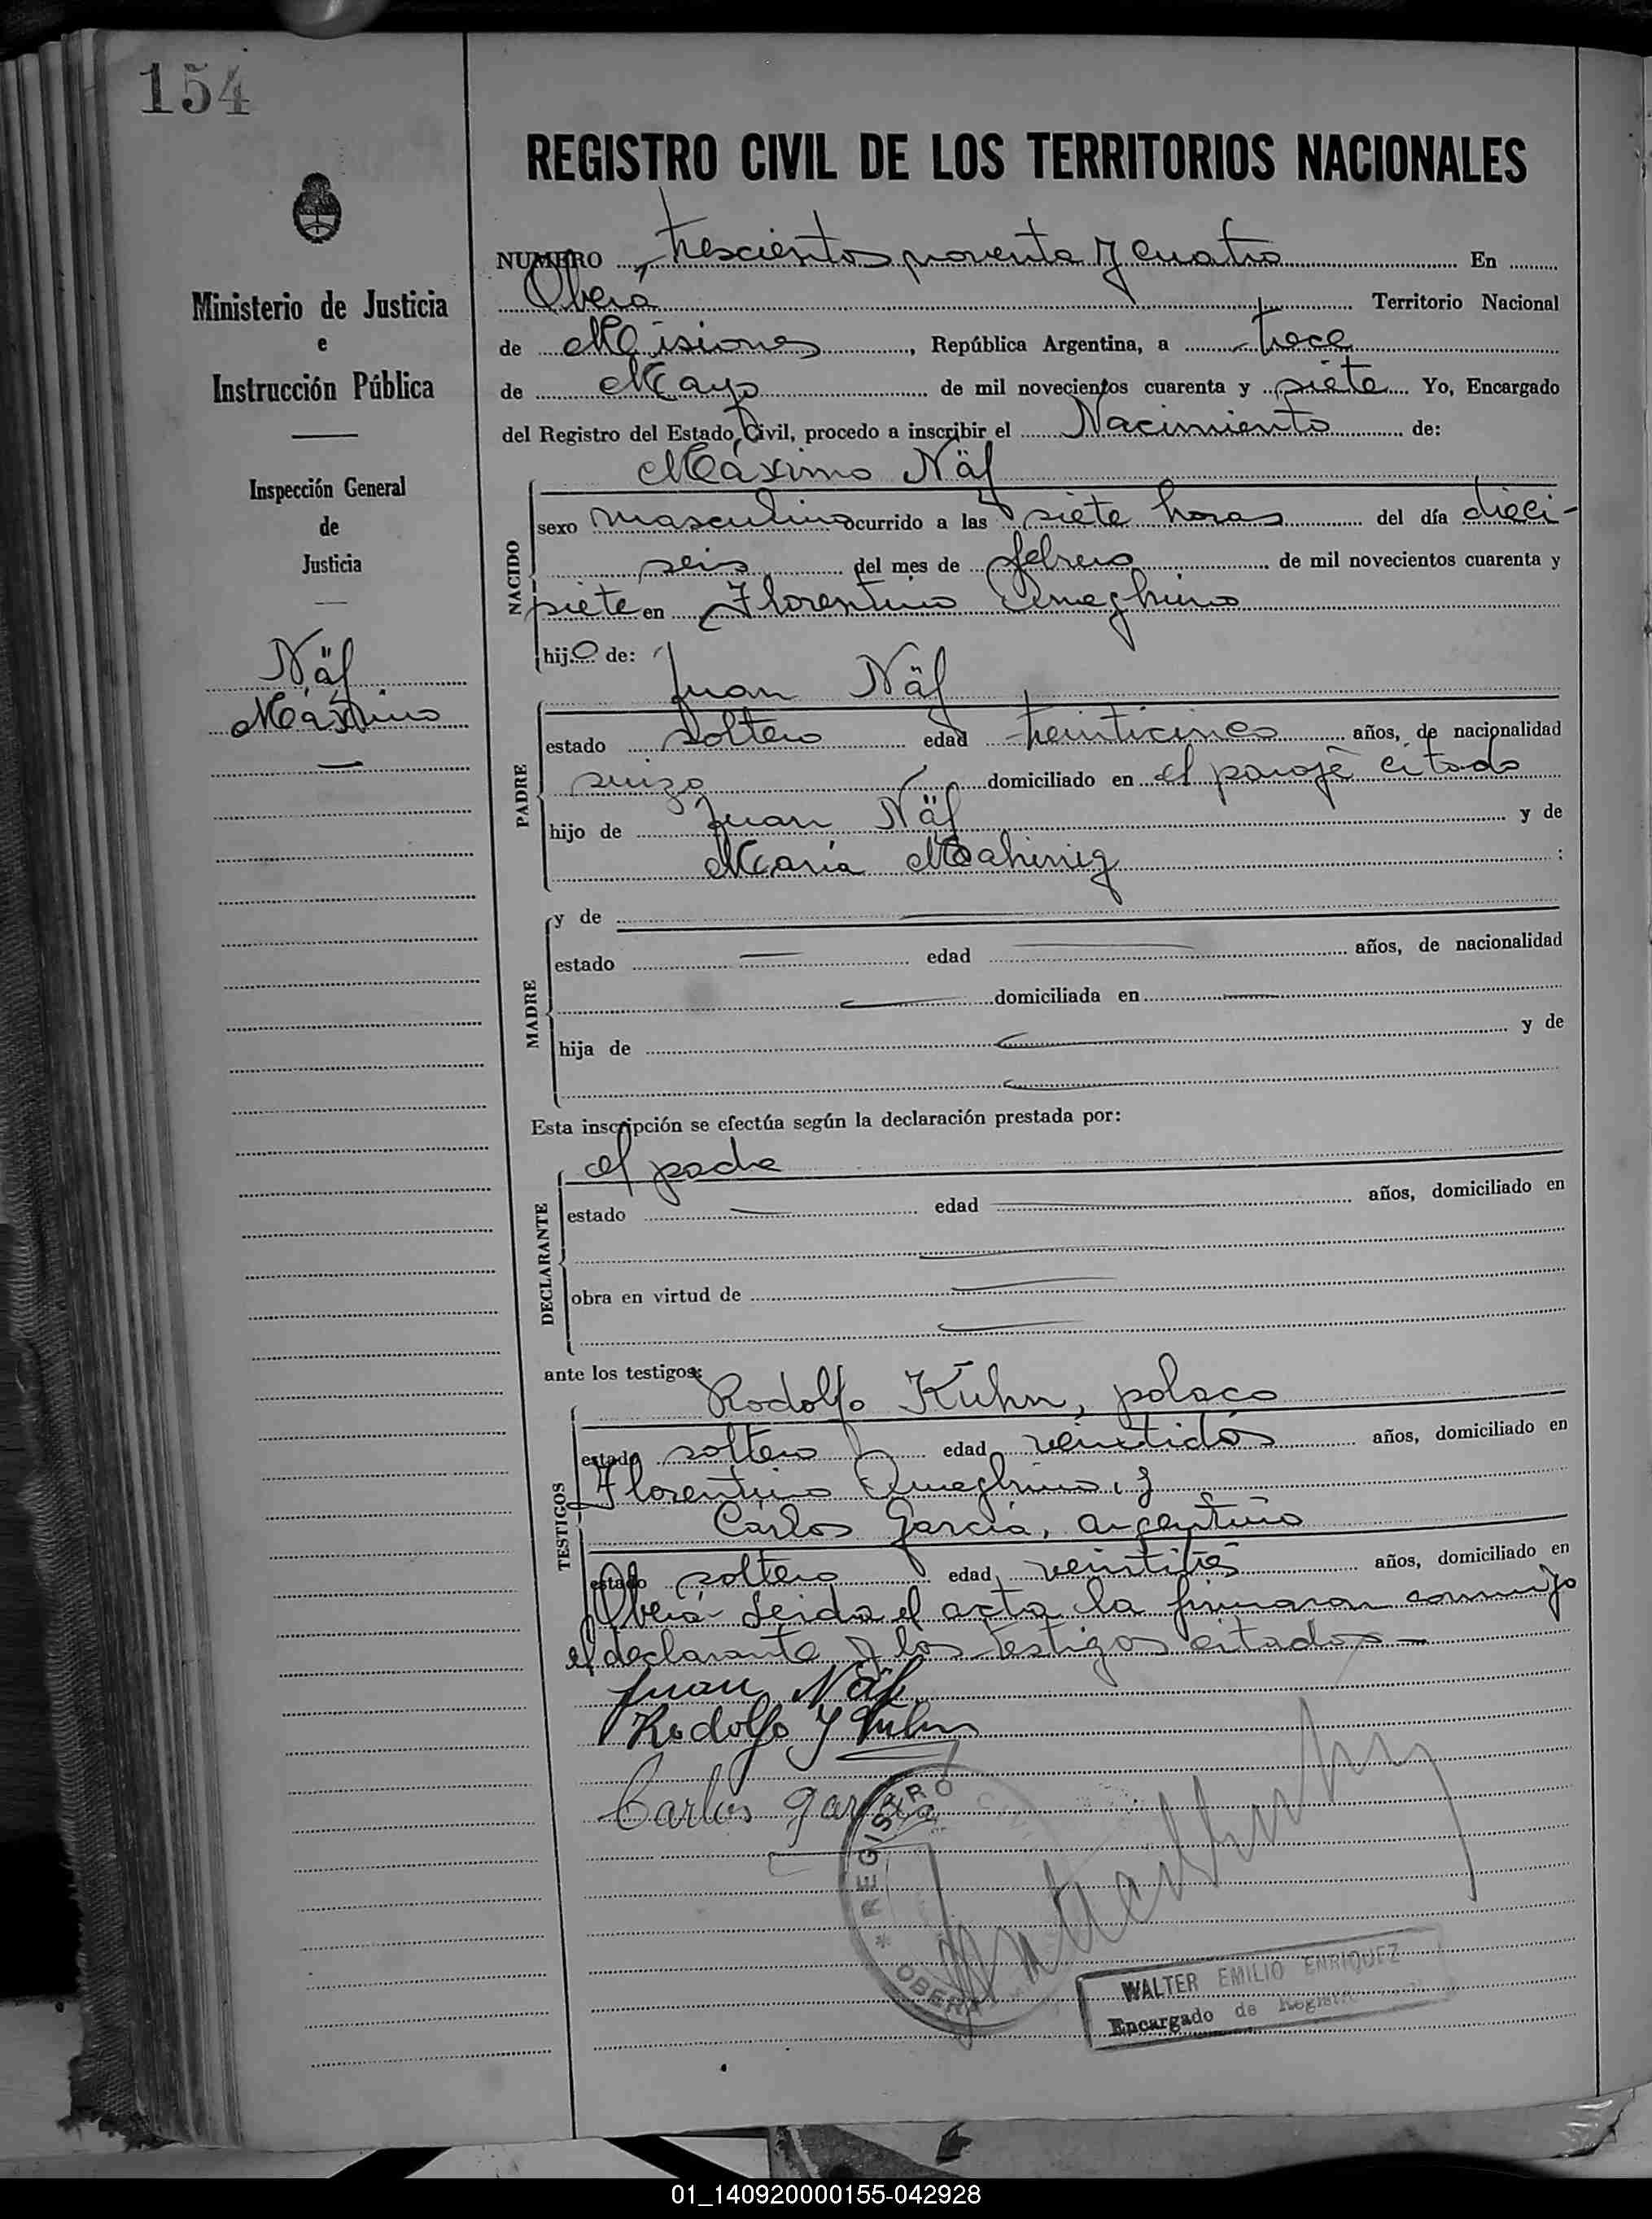 154
REGISTRO CIVIL DE LOS TERRITORIOS NACIONALES
Ministerio de Justicia
e
Instrucción Pública
Inspección General
de
Justicia
Näf
Máximo
NUMERO trescientos noventa y cuatro En
Oberá Territorio Nacional
de Misiones, República Argentina, a trece
de Mayo de mil novecientos cuarenta y siete Yo, Encargado
del Registro del Estado Civil, procedo a inscribir el Nacimiento de:
NACIDO
Máximo Näf
sexo masculino ocurrido a las siete horas del día dieci-
seis del mes de febrero de mil novecientos cuarenta y
siete en Florentino Ameghino
hijo de:
PADRE
Juan Näf
estado soltero edad treinticinco años, de nacionalidad
suizo domiciliado en el paraje citado
hijo de Juan Näf y de
María :
MADRE
y de
estado edad años, de nacionalidad
domiciliada en
hija de y de
Esta inscripción se efectúa según la declaración prestada por:
DECLARANTE
el padre
estado edad años, domiciliado en
obra en virtud de
ante los testigos:
TESTIGOS
Rodolfo Kuhn, polaco
estado soltero edad veintidós años, domiciliado en
Florentino Ameghino, y
Carlos García, argentino
estado soltero edad veintitrés años, domiciliado en
Oberá - Leida el acta la firmaron conmigo
el declarante y los testigos citados -
Juan Näf
Rodolfo Kuhn
Carlos García
REGISTRO
OBERA
WALTER EMILIO ENRIQUEZ
Encargado de Registro
01_140920000155-042928